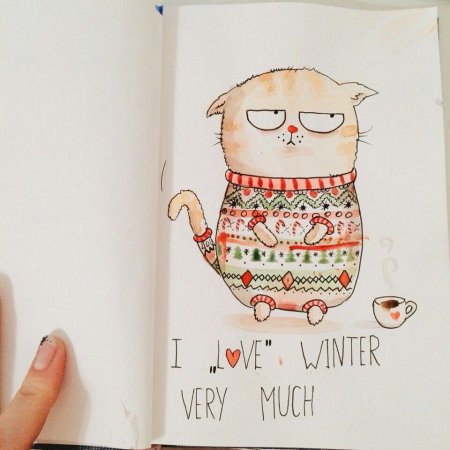 I „LOVE" WINTER
VERY MUCH